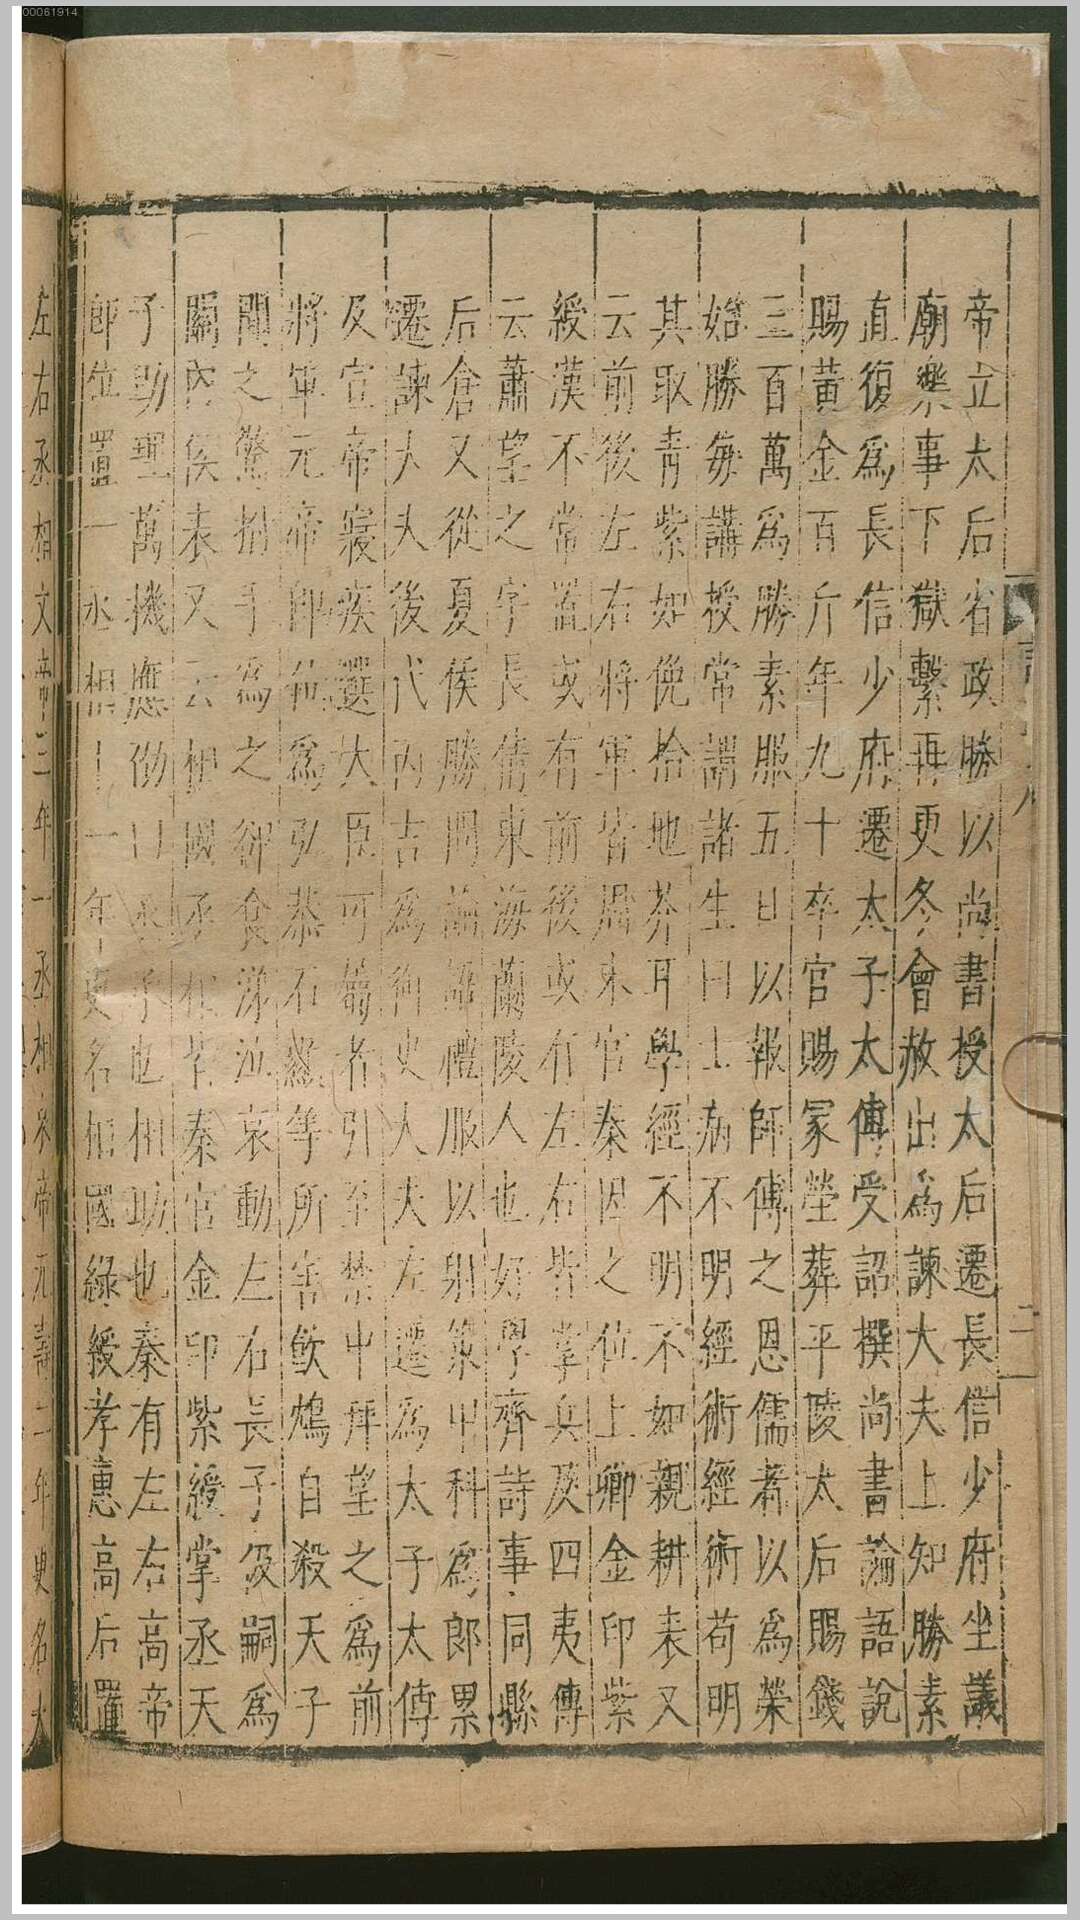 00061914
帝立太后省政勝以尚書授太后遷長信少府坐議
廟樂事下獄繫再更冬會赦出爲諫大夫上知勝素
直復爲長信少府遷太子太傅受詔撰尚書論語說
賜黃金百斤年九十卒官賜冢塋葬平陵太后賜錢
三百萬爲勝素服五日以報師傅之恩儒者以爲榮
始勝每講授常謂諸生曰士病不明經術經術苟明
其取青紫如俛拾地芥耳學經不明不如親耕表又
云前後左右將軍皆周末官秦因之位上卿金印紫
綬漢不常置或有前後或有左右皆掌兵及四夷傳
云蕭望之字長倩東海蘭陵人也好學齊詩事同縣
后倉又從夏侯勝問論語禮服以射策甲科爲郎累
遷諫大夫後代丙吉爲御史大夫左遷爲太子太傅
及宣帝寢疾選大臣可屬者引至禁中拜望之爲前
將軍元帝卽位爲弘恭石顯等所害飲鴆自殺天子
聞之驚拊手爲之卻食涕泣哀動左右長子伋嗣爲
關內侯表又云相國丞相皆秦官金印紫綬掌丞天
子助理萬機應劭曰丞承也相助也秦有左右高帝
卽位置一丞相十一年更名相國綠綬孝惠高后置
左右丞相文帝二年一丞相哀帝元壽二年更名大